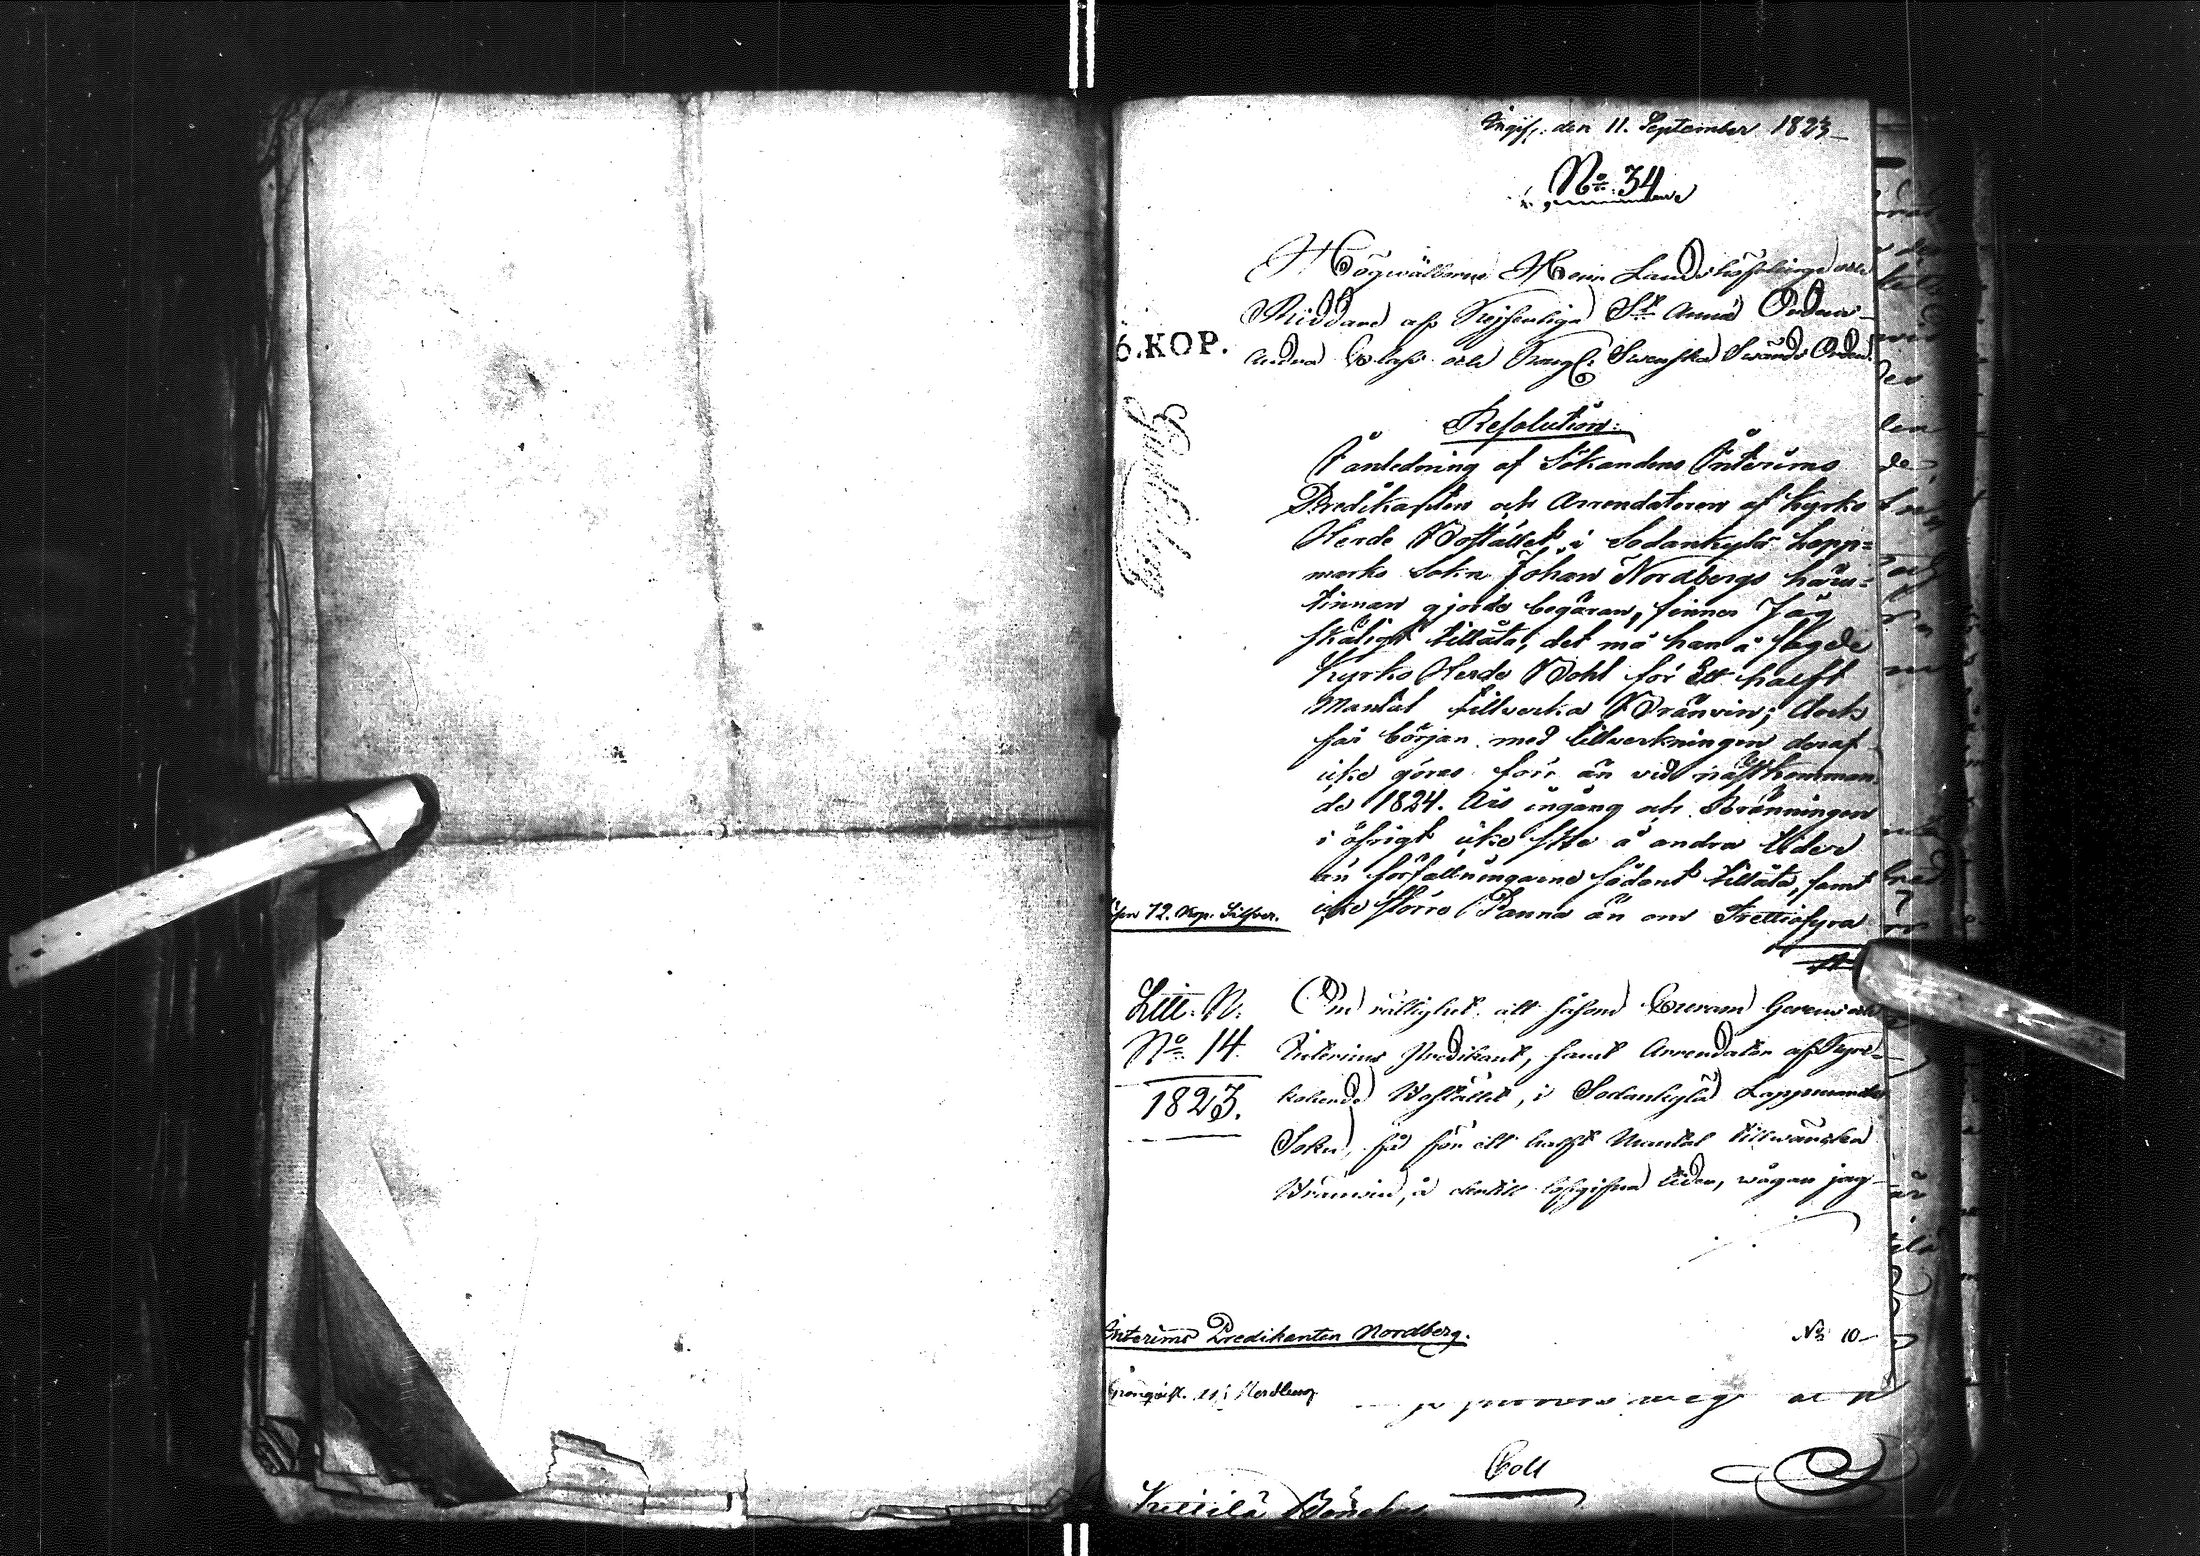 Ingif. den 11. September 1823
No 34
Högwälborne Herr Landshöfdinge och
Riddare af Kejserliga St Annæ Ordens
andra Class och Kongl: Swenska Swärds Orden
6.KOP.
Resolution:
I anledning af Sökandens Interims
Predikanten och Arrendatoren af Kyrko
Herde Bostället i Sodankylä Lapp=
marks Sokn Johan Nordbergs häru=
tinnan gjorde begäran, finner Jag
skäligt tillåta, det må han å sagde
Kyrko Herde Bohl för Ett halft
Mantal tillverka Bränvin; dock
får början med tillverkningen deraf
icke göras förr än vid nästkomman
de 1824. Års ingång och Bränningen
i öfrigt icke ske å andra tider
än författningarne sådant tillåta, samt
icke större Panna än om Trettiofyra
12. Kop. Silfver.
Litt. N:
No 14.
1823.
Om rättighet att såsom
Interims Predikant, samt Arrendator af Kyr-
koherde Bostället, i Sodankylä Lappmarks
Sokn, få för ett halft Mantal tillwärka
Bränwin, å dertill lofgifna tider, wågar jag
Interims Predikanten Nordberg.
No 10
Nordberg
Coll
Kittilä